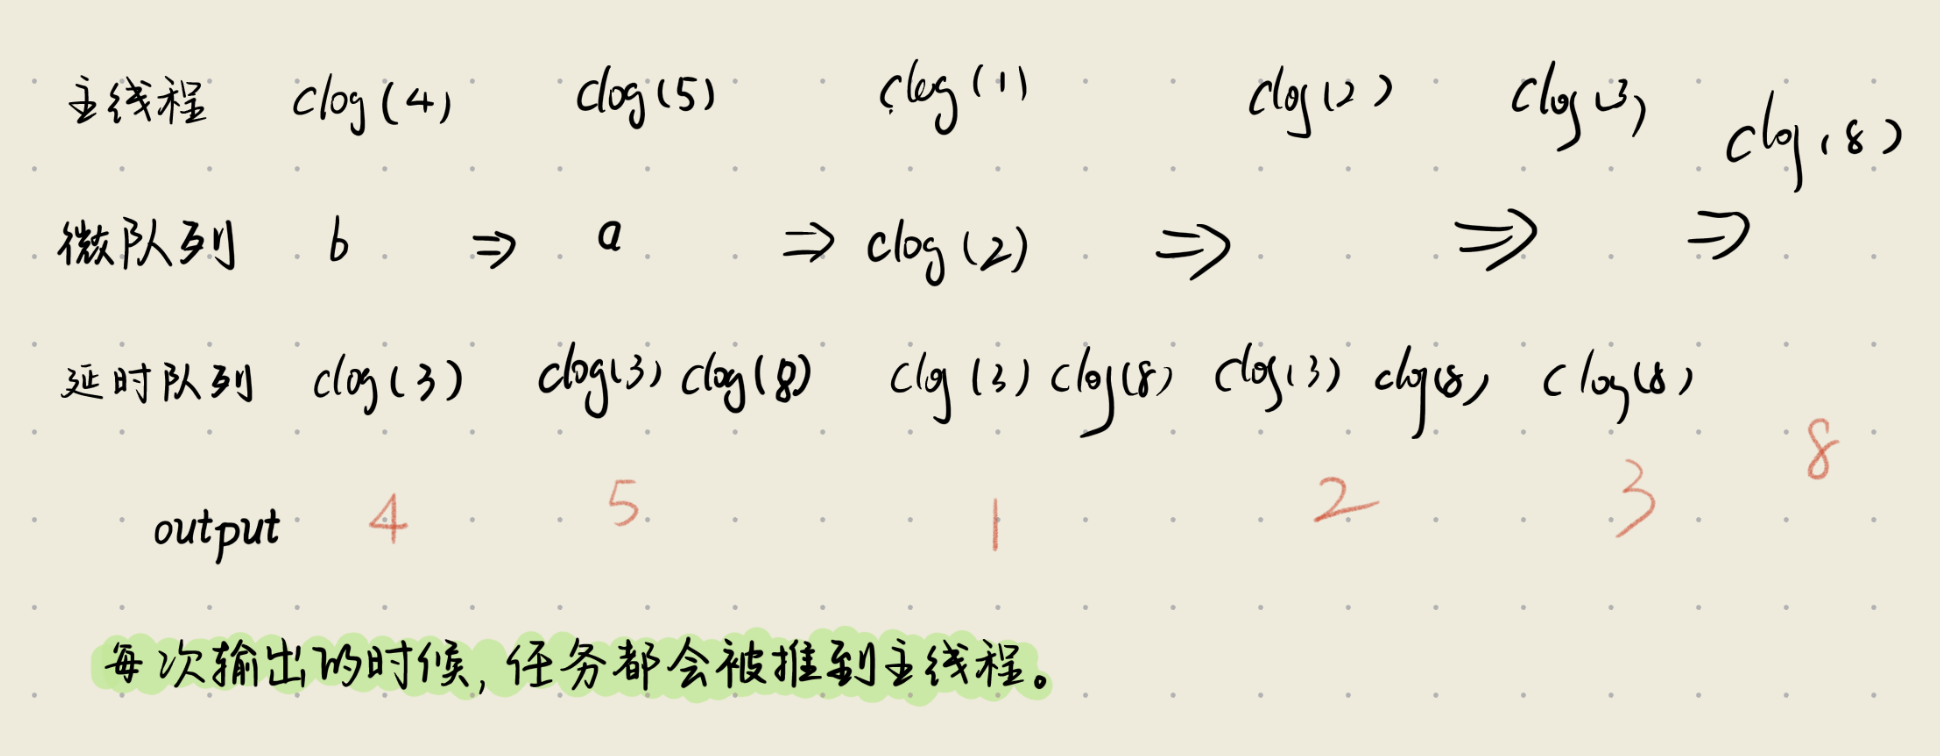 主线程 clog(4) clog(5) clog(1) clog(2) clog(3) clog(8)
微队列 b ⇒ a ⇒ clog(2) ⇒ ⇒ ⇒
延时队列 clog(3) clog(3) clog(8) clog(3) clog(8) clog(3) clog(8) clog(8)
output 4 5 1 2 3 8
每次输出的时候,任务都会被推到主线程。